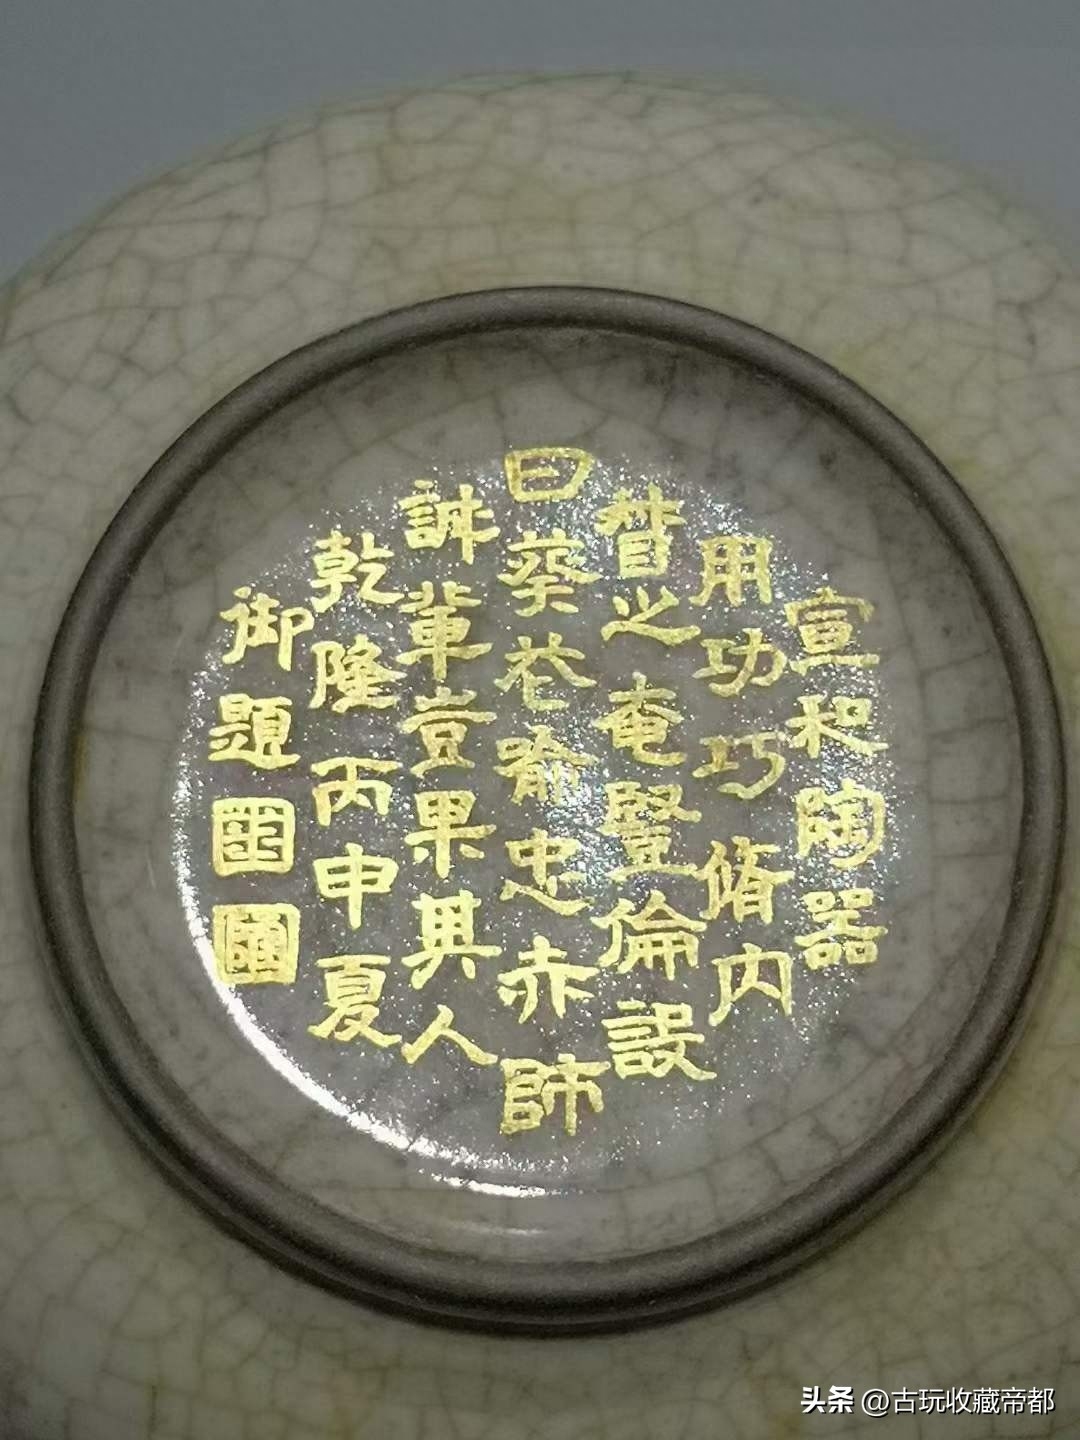 宣和陶器
用功巧脩内
督之奄豎倫設
曰葵花喻忠赤師
誠輩豈果其人
乾隆丙申夏
御題
头条 @古玩收藏帝都